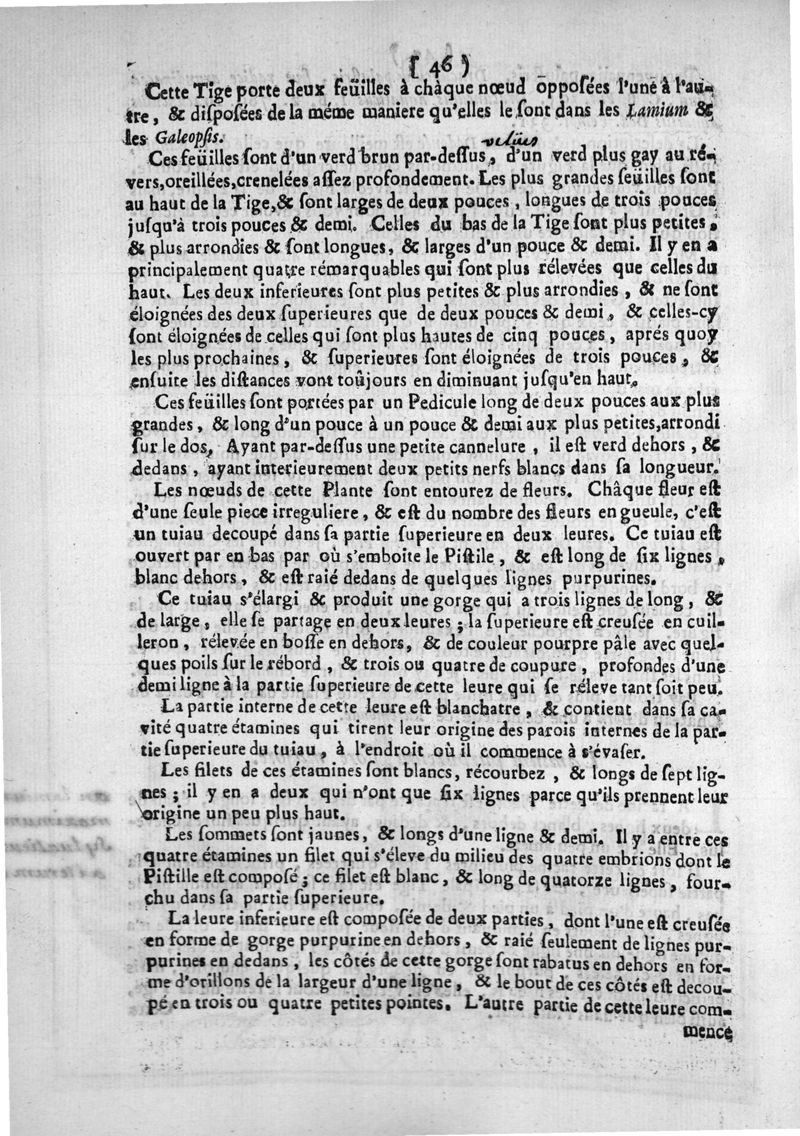 ( 46 )
Cette Tige porte deux feüilles à chàque nœud opposées l'une à l'au-
tre, & diſpoſées de la méme maniere qu'elles le ſont dans les Lamium &
les Galeopſis.
velües
Ces feüilles ſont d'un verd brun par-deſſus, d'un verd plus gay au ré-
vers, oreillées, crenelées aſſez profondement. Les plus grandes feüilles ſont
au haut de la Tige, & ſont larges de deux pouces, longues de trois pouces
juſqu'à trois pouces & demi. Celles du bas de la Tige ſont plus petites,
& plus arrondies & ſont longues, & larges d'un pouce & demi. Il y en a
principalement quatre rémarquables qui ſont plus rélevées que celles du
haut. Les deux inferieures ſont plus petites & plus arrondies, & ne ſont
éloignées des deux ſuperieures que de deux pouces & demi, & celles-cy
ſont éloignées de celles qui ſont plus hautes de cinq pouces, aprés quoy
les plus prochaines, & ſuperieures ſont éloignées de trois pouces, &
enſuite les diſtances vont toûjours en diminuant juſqu'en haut.
Ces feüilles ſont portées par un Pedicule long de deux pouces aux plus
grandes, & long d'un pouce à un pouce & demi aux plus petites, arrondi
ſur le dos, Ayant par-deſſus une petite cannelure, il eſt verd dehors, &
dedans, ayant interieurement deux petits nerfs blancs dans ſa longueur.
Les nœuds de cette Plante ſont entourez de fleurs. Châque fleur eſt
d'une ſeule piece irreguliere, & eſt du nombre des fleurs en gueule, c'eſt
un tuiau decoupé dans ſa partie ſuperieure en deux leures. Ce tuiau eſt
ouvert par en bas par où s'emboite le Piſtile, & eſt long de ſix lignes,
blanc dehors, & eſt raié dedans de quelques lignes purpurines.
Ce tuiau s'élargi & produit une gorge qui a trois lignes de long, &
de large, elle ſe partage en deux leures; la ſuperieure eſt creuſée en cuil-
leron, rélevée en boſſe en dehors, & de couleur pourpre pâle avec quel-
ques poils ſur le rébord, & trois ou quatre de coupure, profondes d'une
demi ligne à la partie ſuperieure de cette leure qui ſe réleve tant ſoit peu.
La partie interne de cette leure eſt blanchatre, & contient dans ſa ca-
vité quatre étamines qui tirent leur origine des parois internes de la par-
tie ſuperieure du tuiau, à l'endroit où il commence à s'évaſer.
Les filets de ces étamines ſont blancs, récourbez, & longs de ſept lig-
nes; il y en a deux qui n'ont que ſix lignes parce qu'ils prennent leur
origine un peu plus haut.
Les ſommets ſont jaunes, & longs d'une ligne & demi. Il y a entre ces
quatre étamines un filet qui s'éleve du milieu des quatre embrions dont le
Piſtille eſt compoſé; ce filet eſt blanc, & long de quatorze lignes, four-
chu dans ſa partie ſuperieure.
La leure inferieure eſt compoſée de deux parties, dont l'une eſt creuſée
en forme de gorge purpurine en dehors, & raié ſeulement de lignes pur-
purines en dedans, les côtés de cette gorge ſont rabatus en dehors en for-
me d'orillons de la largeur d'une ligne, & le bout de ces côtés eſt decou-
pé en trois ou quatre petites pointes. L'autre partie de cette leure com-
mence